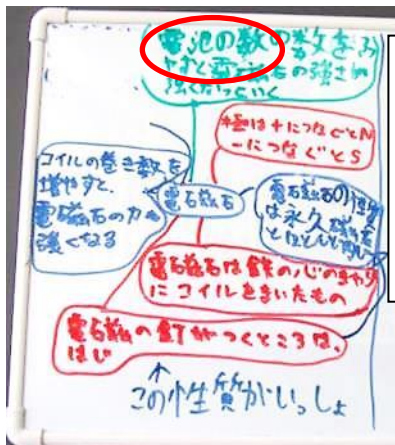 電池の数の数をふ
やすと電磁石の強さが
強くなっていく
極は+につなぐとN
-につなぐとS
コイルの巻き数を
増やすと、
電磁石の力が
強くなる
電磁石
電磁石の性質
は永久磁石
とほとんど同じ
電磁石は鉄の心のまわり
にコイルをまいたもの
電磁石の釘がつくところは、
はじ
この性質がいっしょ